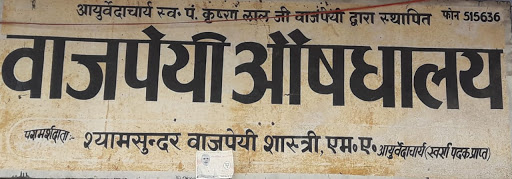 आयुर्वेदाचार्य स्व॰ पं. कृष्ण लाल जी वाजपेयी द्वारा स्थापित फोन 515636
वाजपेयी औषधालय
परामर्शदाता :- श्यामसुन्दर वाजपेयी शास्त्री, एम॰ए॰ आयुर्वेदाचार्य (स्वर्ण पदक प्राप्त)